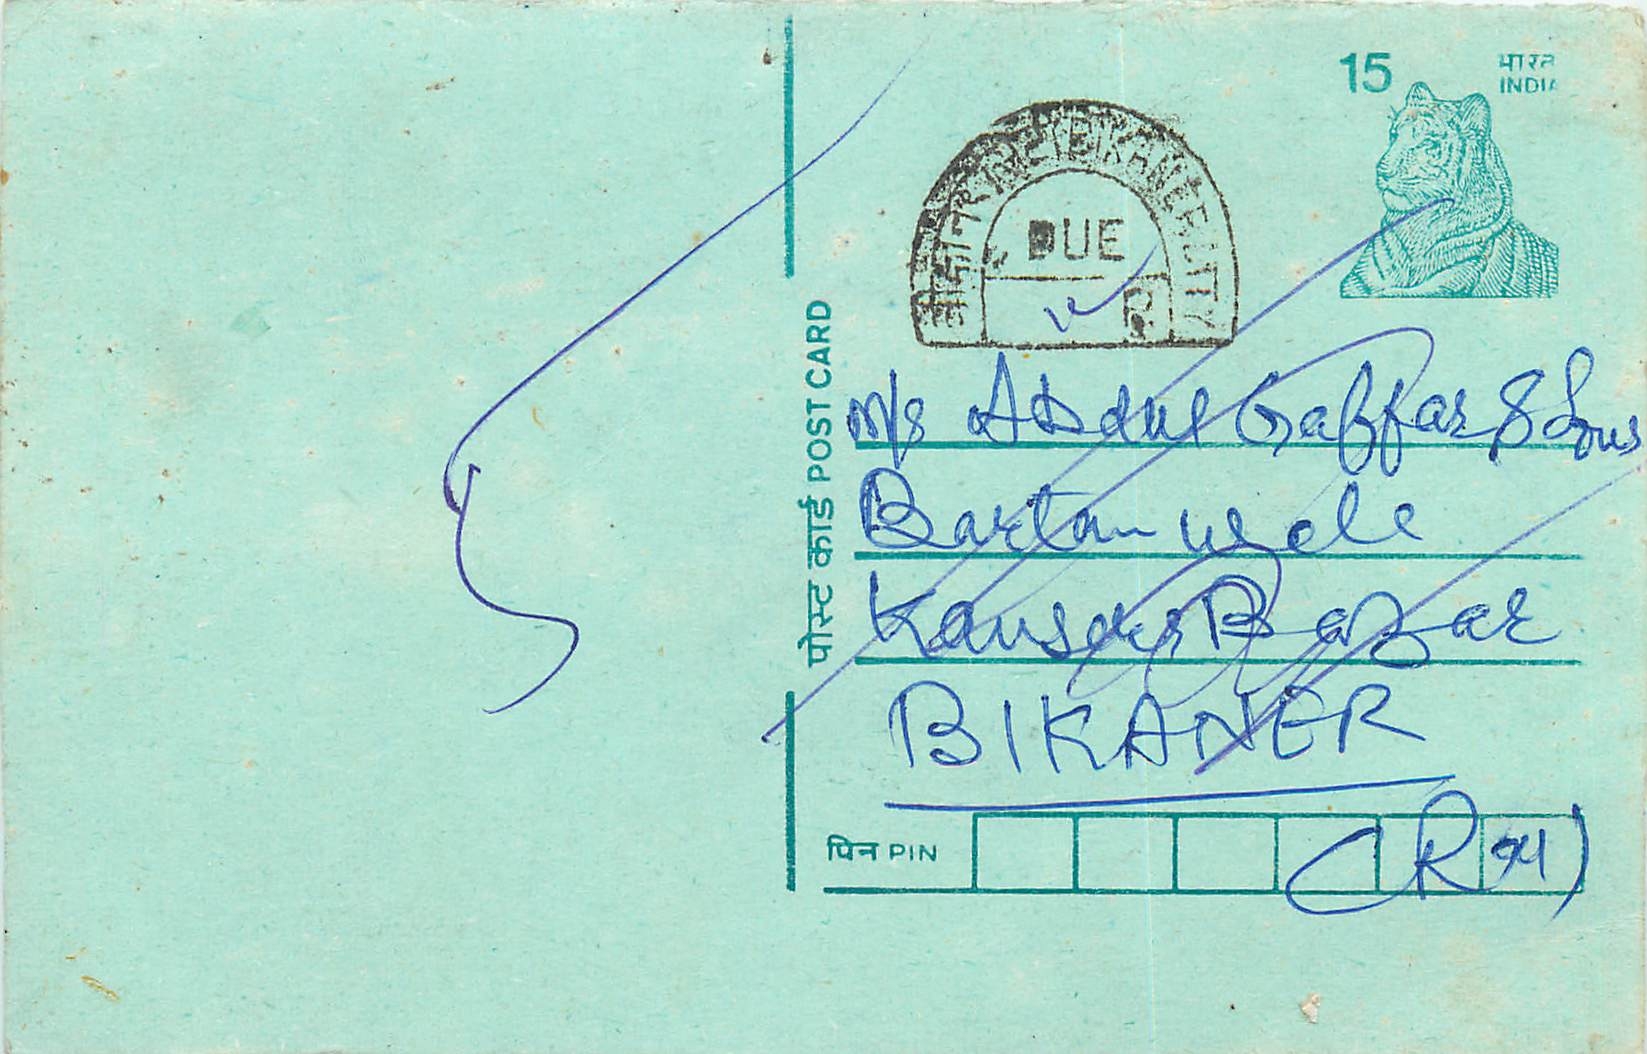 15 भारत
INDIA
बीकानेर सिटी BIKANER CITY
DUE
पोस्ट कार्ड POST CARD
M/s Abdul Gaffar & Sons
Bartan wale
Bazar
BIKANER
पिन PIN
(Raj)